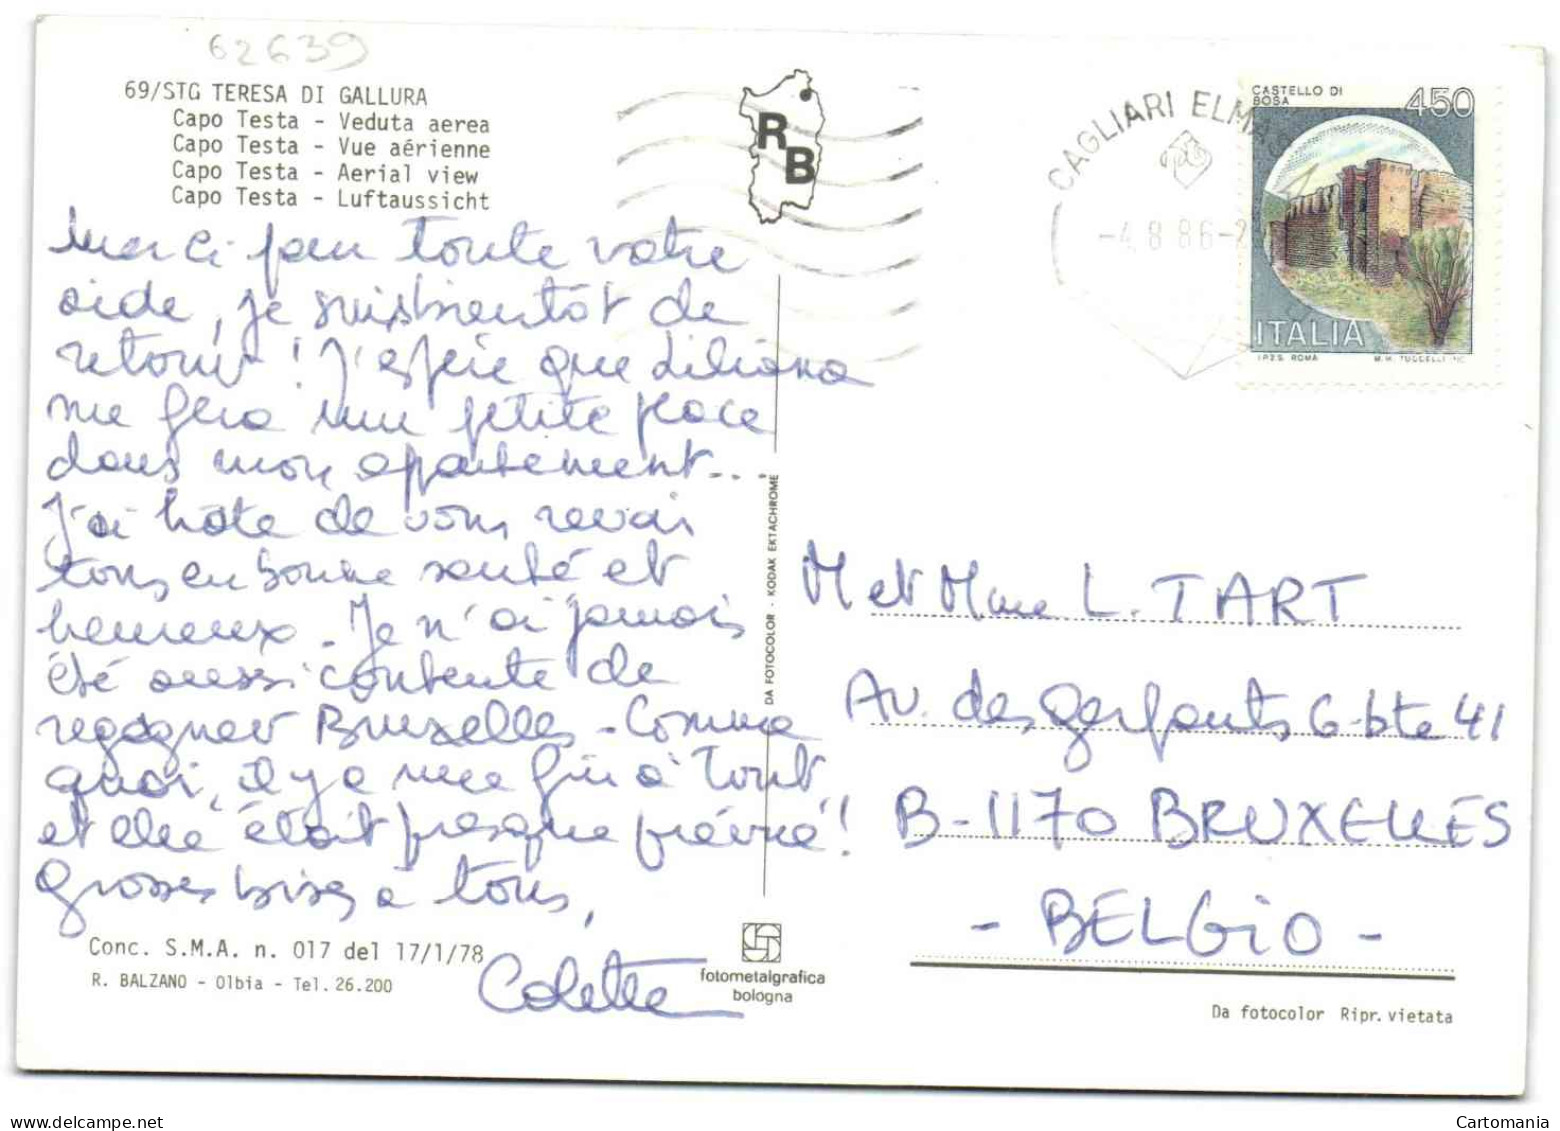 62639
69/STG TERESA DI GALLURA
Capo Testa - Veduta aerea
Capo Testa - Vue aérienne
Capo Testa - Aerial view
Capo Testa - Luftaussicht
Merci pour toute votre
aide, je suis bientôt de
retour ! J'espère que Liliana
me fera une petite place
dans mon apartement...
J'ai hâte de vous revoir
tous en bonne santé et
heureux. Je n'ai jamais
été aussi contente de
regagner Bruxelles - Comme
quoi, il y a une fin à tout
et elle était presque prévue !
grosses bises à tous,
Colette
Conc. S.M.A. n. 017 del 17/1/78
R. BALZANO - Olbia - Tel. 26.200
RB
DA FOTOCOLOR - KODAK EKTACHROME
fotometalgrafica
bologna
CAGLIARI ELMAS
-4.8.86-2
CASTELLO DI
BOSA
450
ITALIA
I.P.Z.S. ROMA
M.M. TUCCELLI INC.
M et Mme L. TART
Av. des gerfauts 6 bte 41
B-1170 BRUXELLES
- BELGIO -
Da fotocolor Ripr. vietata
delcampe.net
Cartomania